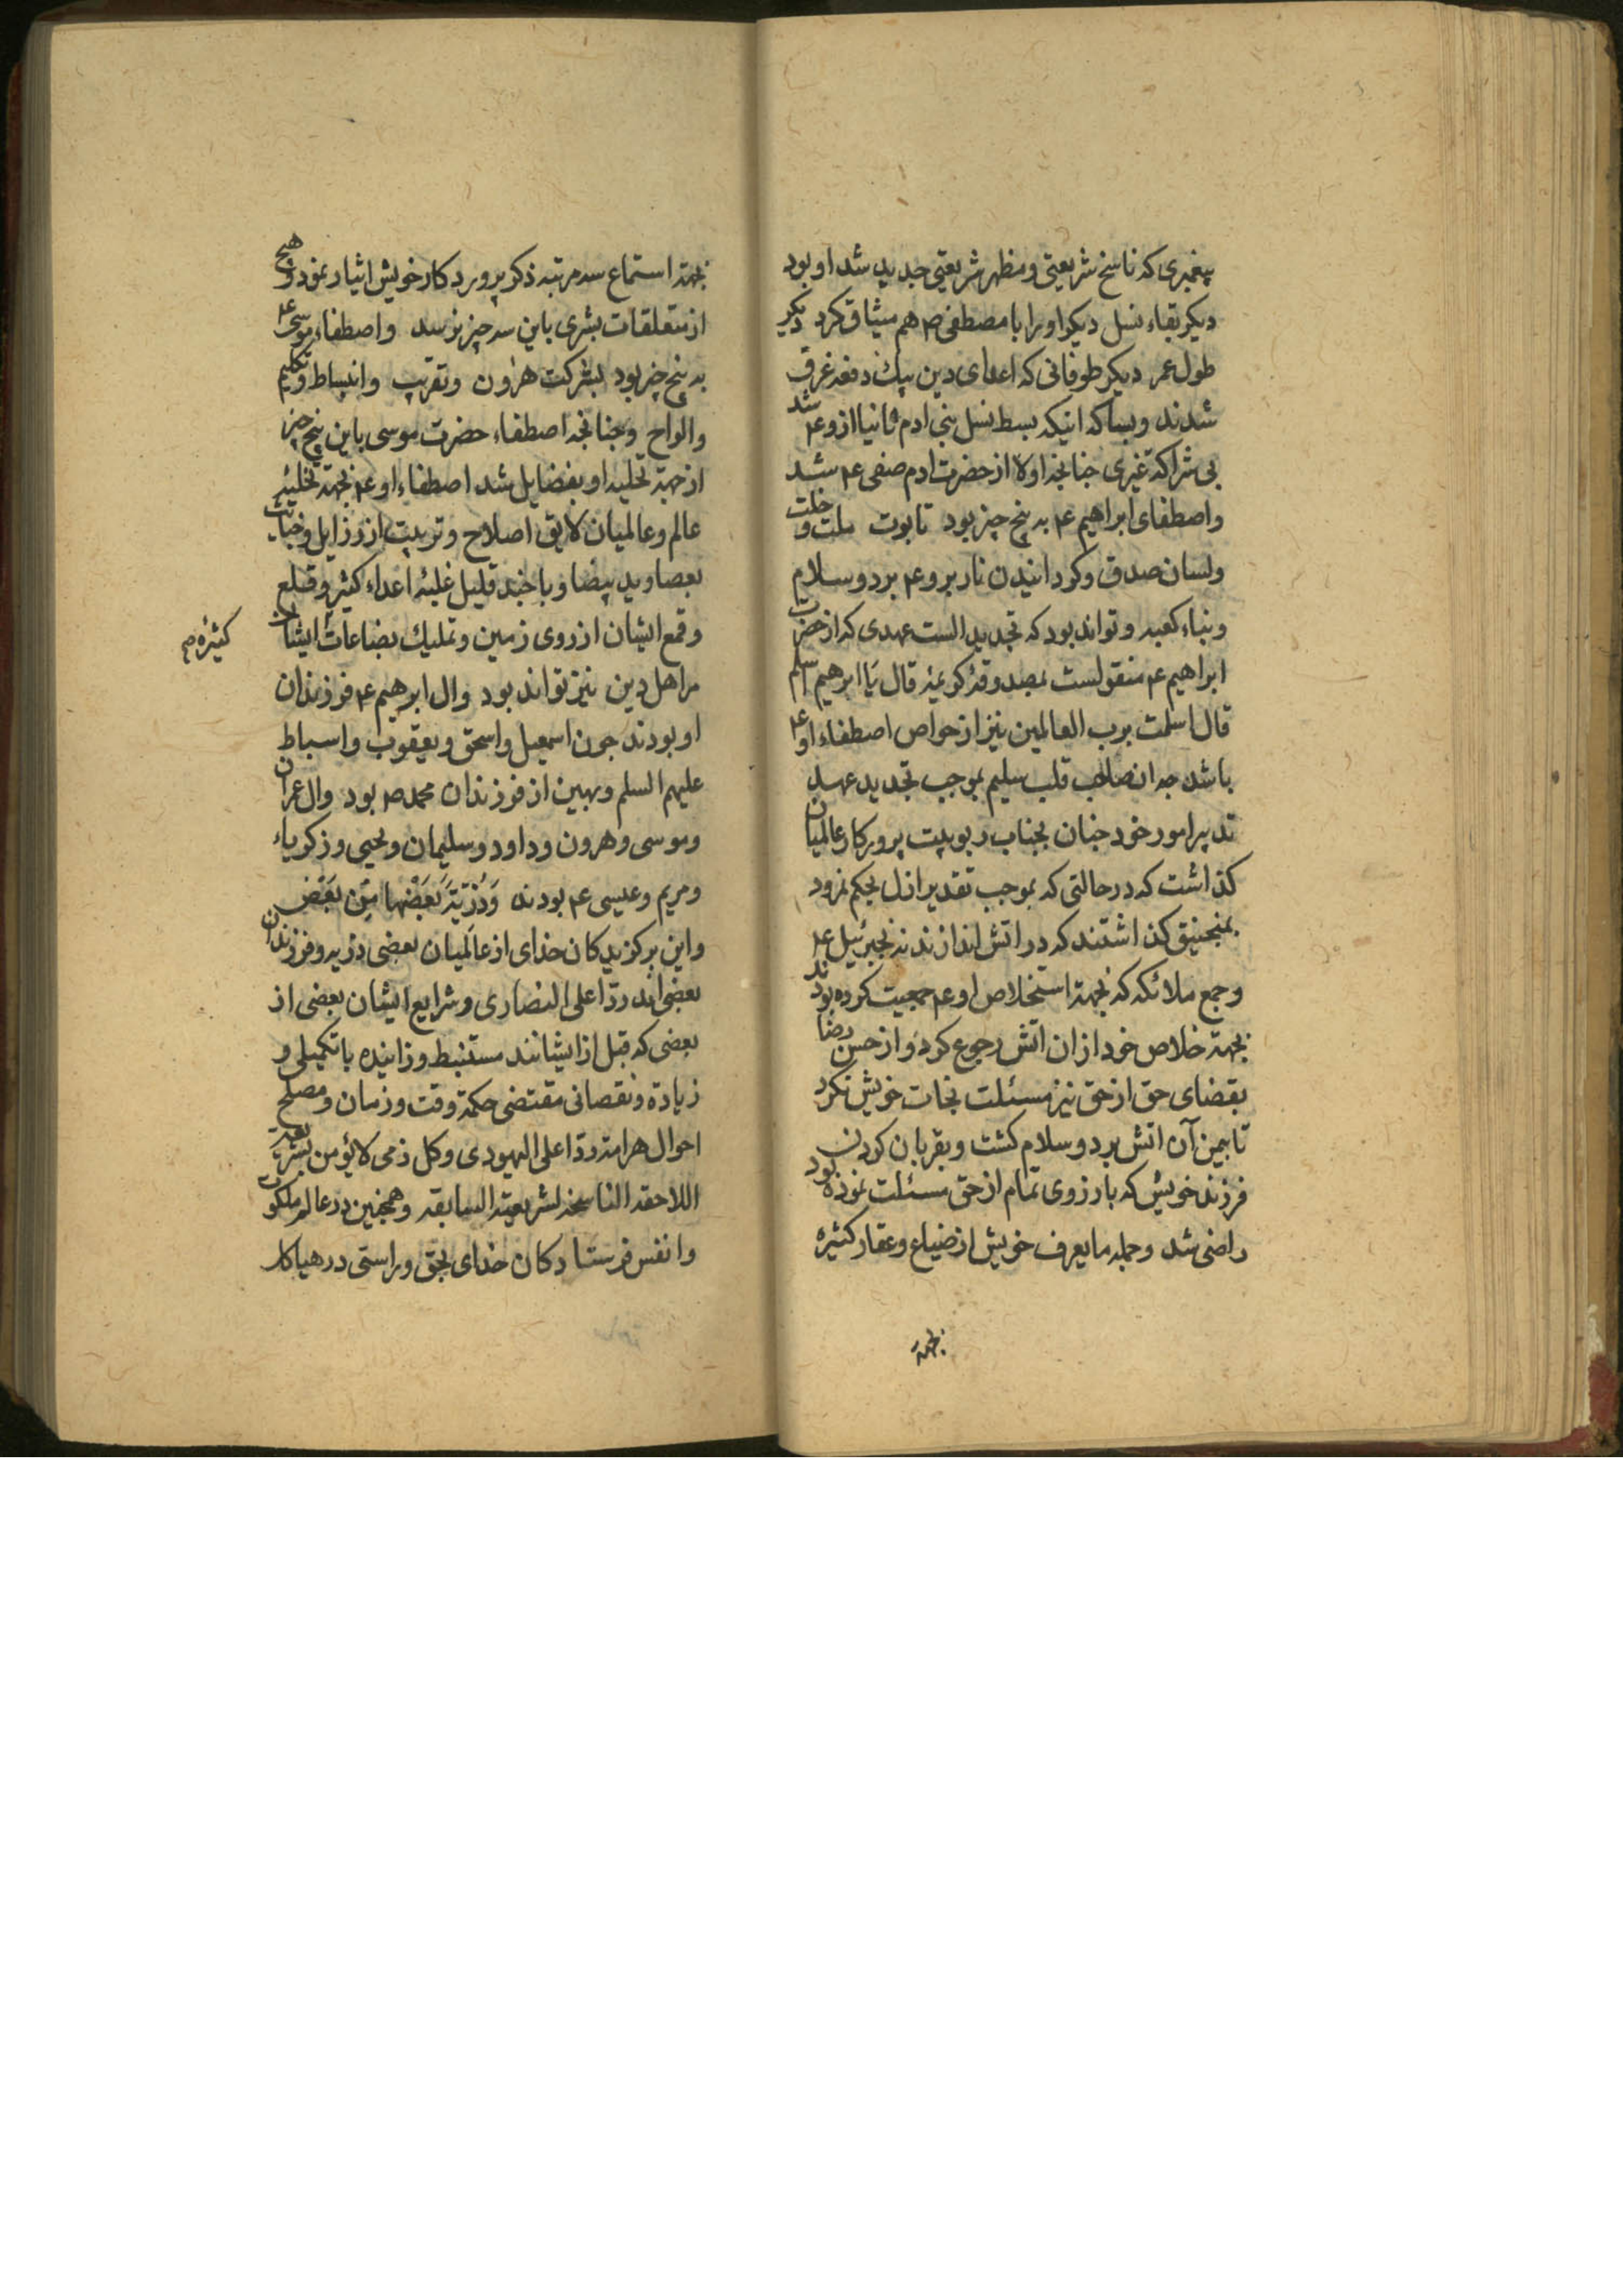 پیغمبری که ناسخ شریعتی و مظهر شریعتی جدید شد او بود
دیکر بقاء نسل دیکر او را با مصطفی صم هم میثاق کرد دیکر
طول عمر دیکر طوفانی که اعدای دین بیك دفعه غرق
شدند و بساکه انیکه بسط نسل بنی ادم ثانیا ازو عم شد
بی شراکة غیری جنانجه اولا از حضرت ادم صفی عم شد
واصطفای ابراهیم عم به پنج چیز بود تابوت ملت و خلت
ولسان صدق وکردانیدن نار برو عم برد وسلام
وبناء کعبه وتواند بود که تجدید الست عهدی که از حضرت
ابراهیم عم منقولست بمصدوقه کریمه قال یا ابرهیم اسلم
قال اسلمت برب العالمین نیز از خواص اصطفاء او عم
باشد جه ان صاحب قلب سلیم بموجب تجدید عهد
تدبیر امور خود جنان بجناب ربوبیت پرورکار عالمیان
کذاشت که در حالتی که بموجب تقدیر ازل بحکم نمرود
بمنجنیق کذاشتند که در اتش اندازند نه بجبرئیل عم
وجمع ملائکه که بجهة استخلاص او عم جمعیت کرده بودند
بجهة خلاص خود ازان اتش رجوع کرد و از حسن رضا
بقضای حق از حق نیز مسئلت نجات خویش نکرد
تا بیمن آن اتش برد وسلام کشت وبقربان کردن
فرزند خویش که بارزوی تمام از حق مسئلت نموده بود
راضی شد وجمله ما یعرف خویش از ضیاع وعقار کثیره
بجهة
بجهة استماع سه مرتبه ذکر پروردکار خویش ایثار نمود و هیج
از متعلقات بشری باین سه چیز نرسد واصطفاء موسی عم
به پنج چیز بود بشرکت هرون وتقریب وانبساط وتکلیم
والواح وجنانجه اصطفاء حضرت موسی باین پنج چیز
از جهة تحلیه او بفضایل شد اصطفاء او عم بجهة تخلیئه
عالم وعالمیان لایق اصلاح وتربیت از رزایل وخباثت
بعصا وید بیضا وبا جند قلیل غلبئه اعداء کثیر وقلع
وقمع ایشان از روی زمین وتملیك بضاعات ایشان
کثیره صم
مراهل دین نیز تواند بود وال ابرهیم عم فرزندان
او بودند جون اسمعیل واسحق ویعقوب واسباط
علیهم السلم وبهین از فرزندان محمد صم بود وال عمران
وموسی وهرون وداود وسلیمان ویحیی وزکریاء
ومریم وعیسی عم بودند وَذُرِّیَّةَ بَعْضُها مِن بَعْضٍ
واین برکزیدکان خدای از عالمیان بعضی ذریه وفرزندان
بعضی اند ردّا علی النصاری وشرایع ایشان بعضی از
بعضی که قبل از ایشانند مستنبط وزاینده با تکمیلی و
زیادة ونقصانی مقتضی حکمة وقت وزمان ومصلح
احوال هر امة ردّا علی الیهودی وکل ذمی لا یؤمن بشریعة
اللاحقه الناسخه لشریعته السابقه وهمجنین در عالم ملکوت
وانفس فرستادکان خدای بحق وراستی در هیاکل